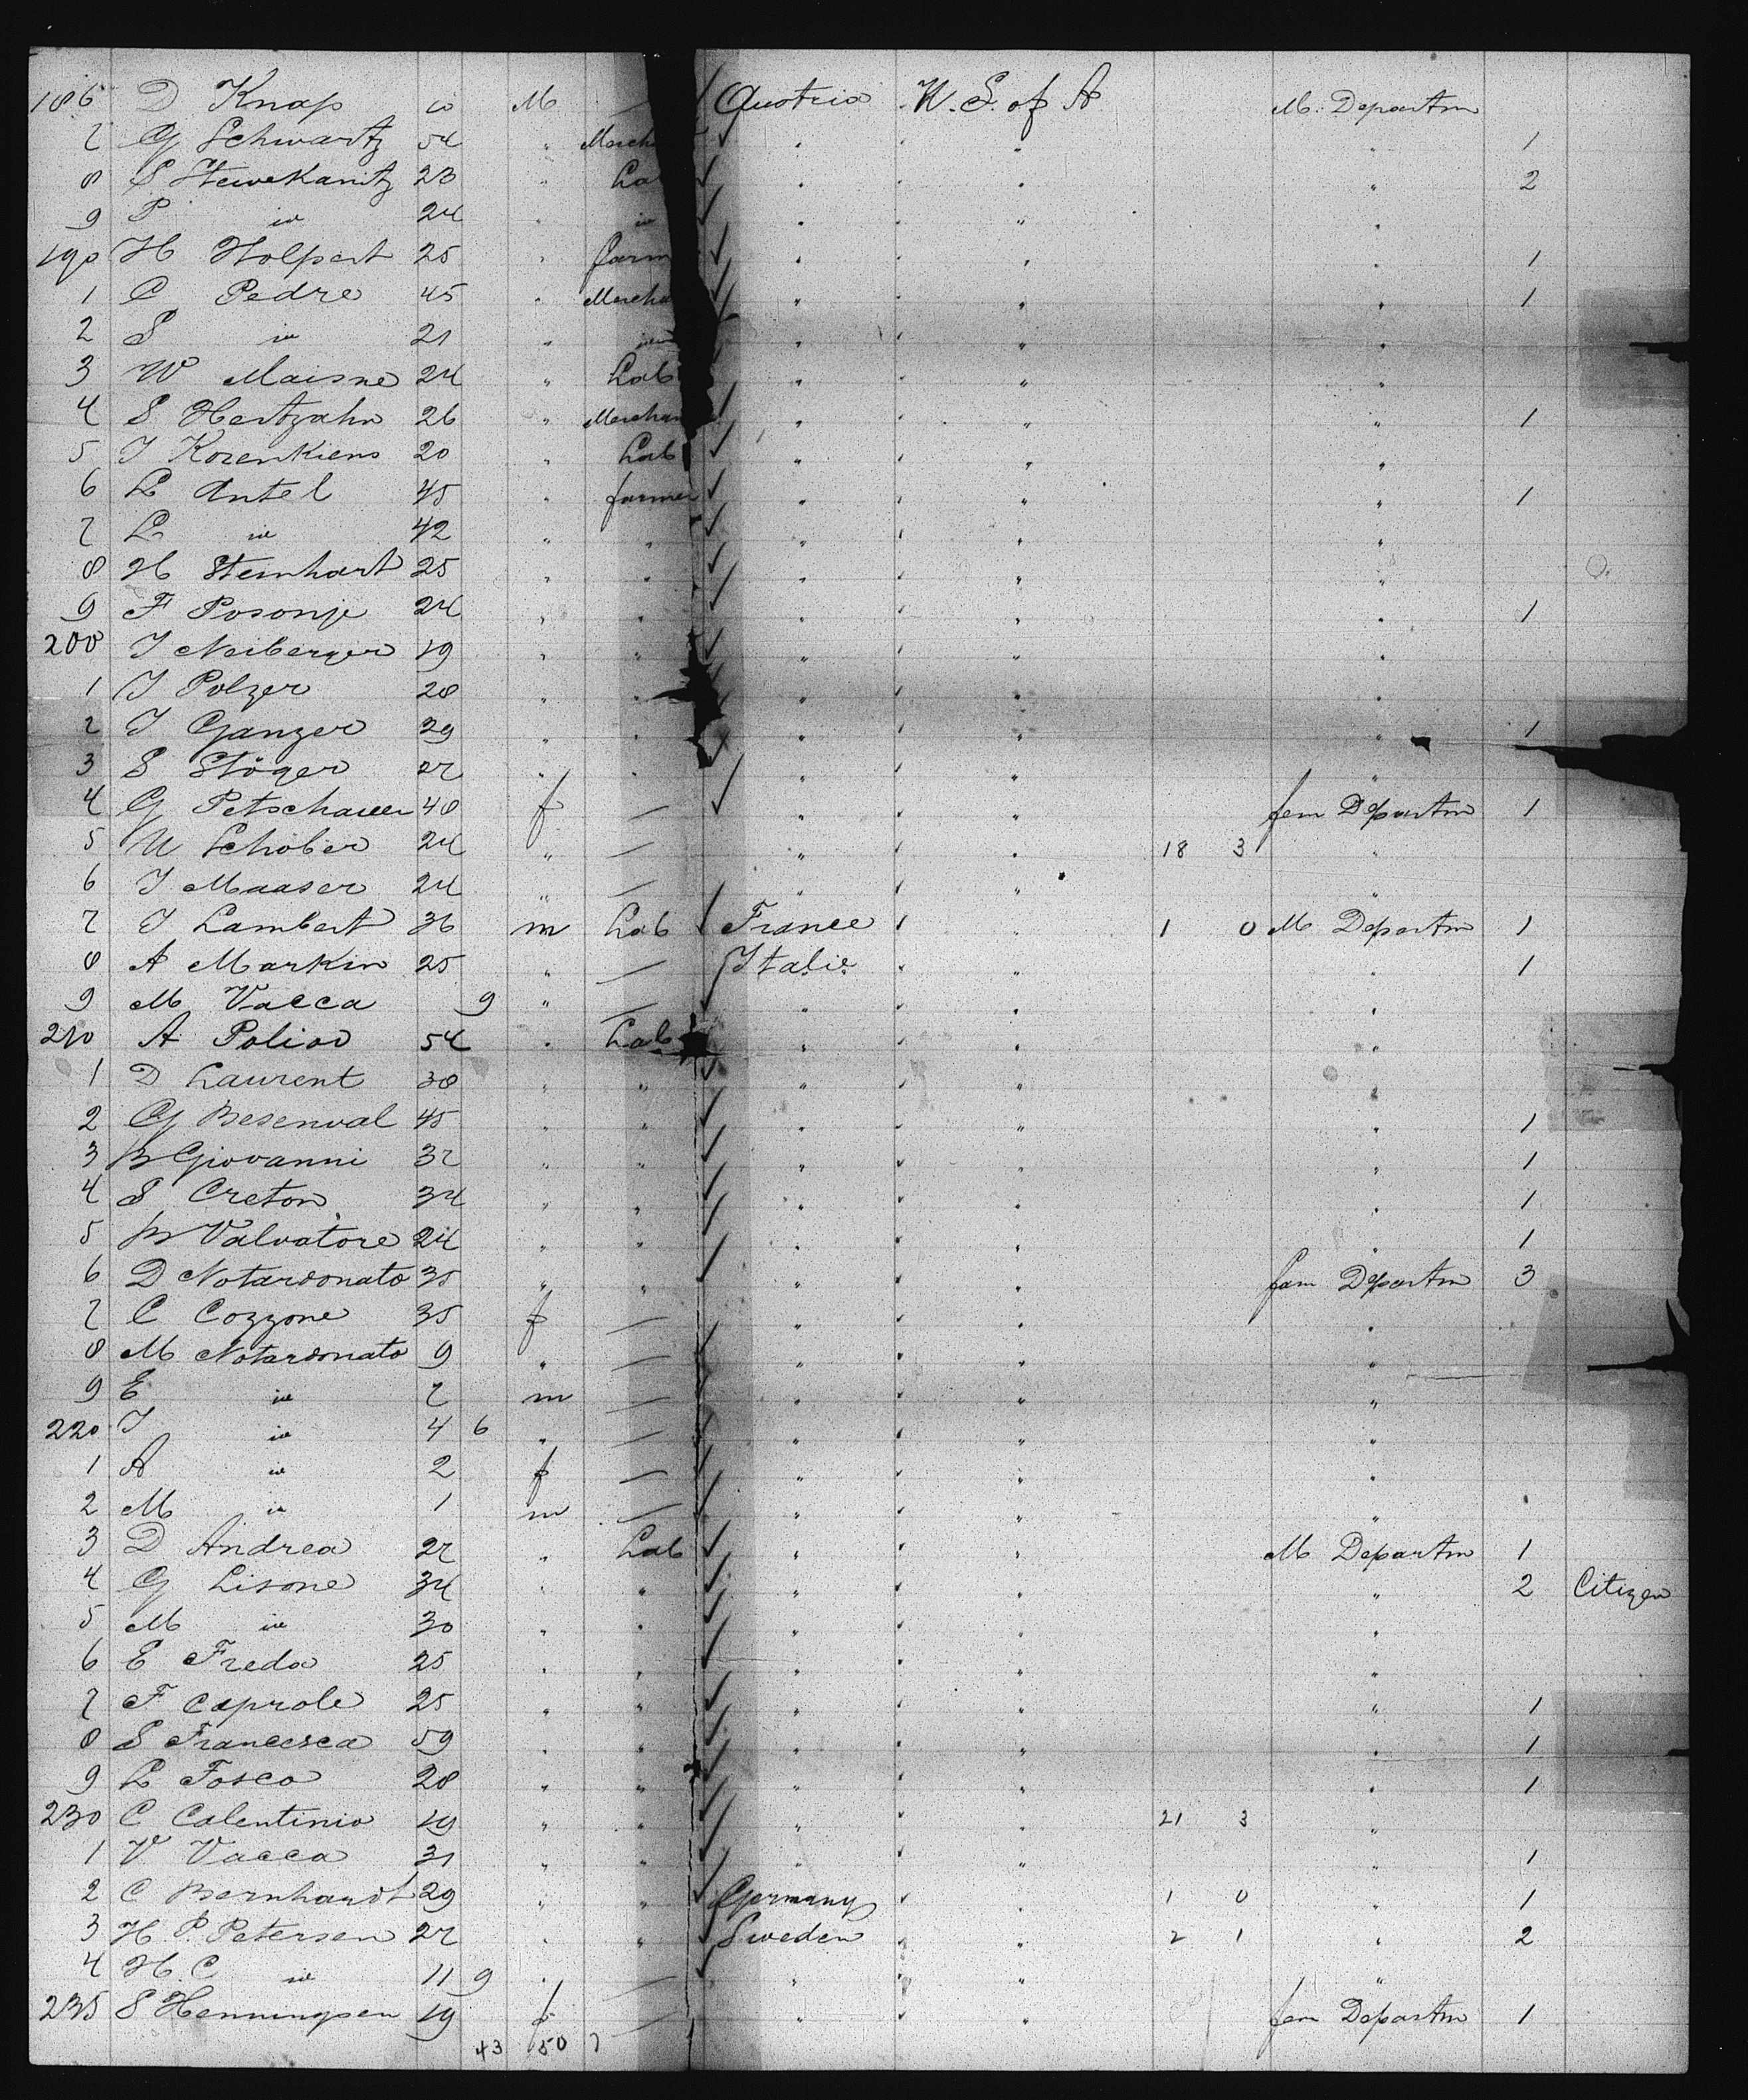 186 D Knap M — Austria U. S. of A M. Departm
7 G Schwartz 54 " March " " " 1
8 S Stewekanitz 28 " Lab " " " 2
9 P id 24 " id " " "
190 H Holpert 25 " farm " " " 1
1 C Pedre 45 " Mercha " " " 1
2 S id 21 " " " "
3 W Maisne 24 " Lab " " "
4 S Hertzahn 26 " Merchan " " " 1
5 J Korenkiens 20 " Lab " " "
6 L Antel 45 " farmer " " " 1
7 L id 42 " " " " "
8 H Steinhart 25 " " " " "
9 F Posonje 24 " " " " " 1
200 J Neiberger 19 " " " " "
1 J Polzer 28 " " " " "
2 J Ganzer 29 " " " " " 1
3 S Stöger 27 " " " " "
4 G Petschauer 48 f — " fem Departm 1
5 M Schober 24 " — " " 18 3 "
6 J Maaser 24 " — " " "
7 J Lambert 36 m Lab France " 1 0 M Departm 1
8 A Markin 25 " — Italie " " 1
9 M Vacca 9 " — " " "
210 A Polioo 54 " Lab " " "
1 D Laurent 38 " " " " "
2 G Besenval 45 " " " " " 1
3 B Giovanni 37 " " " " " 1
4 S Creton 34 " " " " " 1
5 B Valvatore 24 " " " " " 1
6 D Notardonato 35 " " " " fam Departm 3
7 C Cozzone 35 f — " " "
8 M Notardonato 9 " — " " "
9 E id 7 m — " " "
220 J id 4 6 " — " " "
1 A id 2 f — " " "
2 M id 1 m — " " "
3 D Andrea 27 " Lab " " M Departm 1
4 G Lisone 34 " " " " " 2 Citizen
5 M id 30 " " " " "
6 E Freda 25 " " " " "
7 F Caprole 25 " " " " " 1
8 S Francesca 59 " " " " " 1
9 L Fosco 28 " " " " " 1
230 C Calentinio 19 " " " " 21 3 "
1 V Vacca 31 " " " " " 1
2 C Bernhardt 29 " " Germany " 1 0 " 1
3 H. P. Petersen 27 " " Sweden " 2 1 " 2
4 H. C id 11 9 " — " " "
235 S Henningsen 19 f — " " fem Departm 1
43 50 7